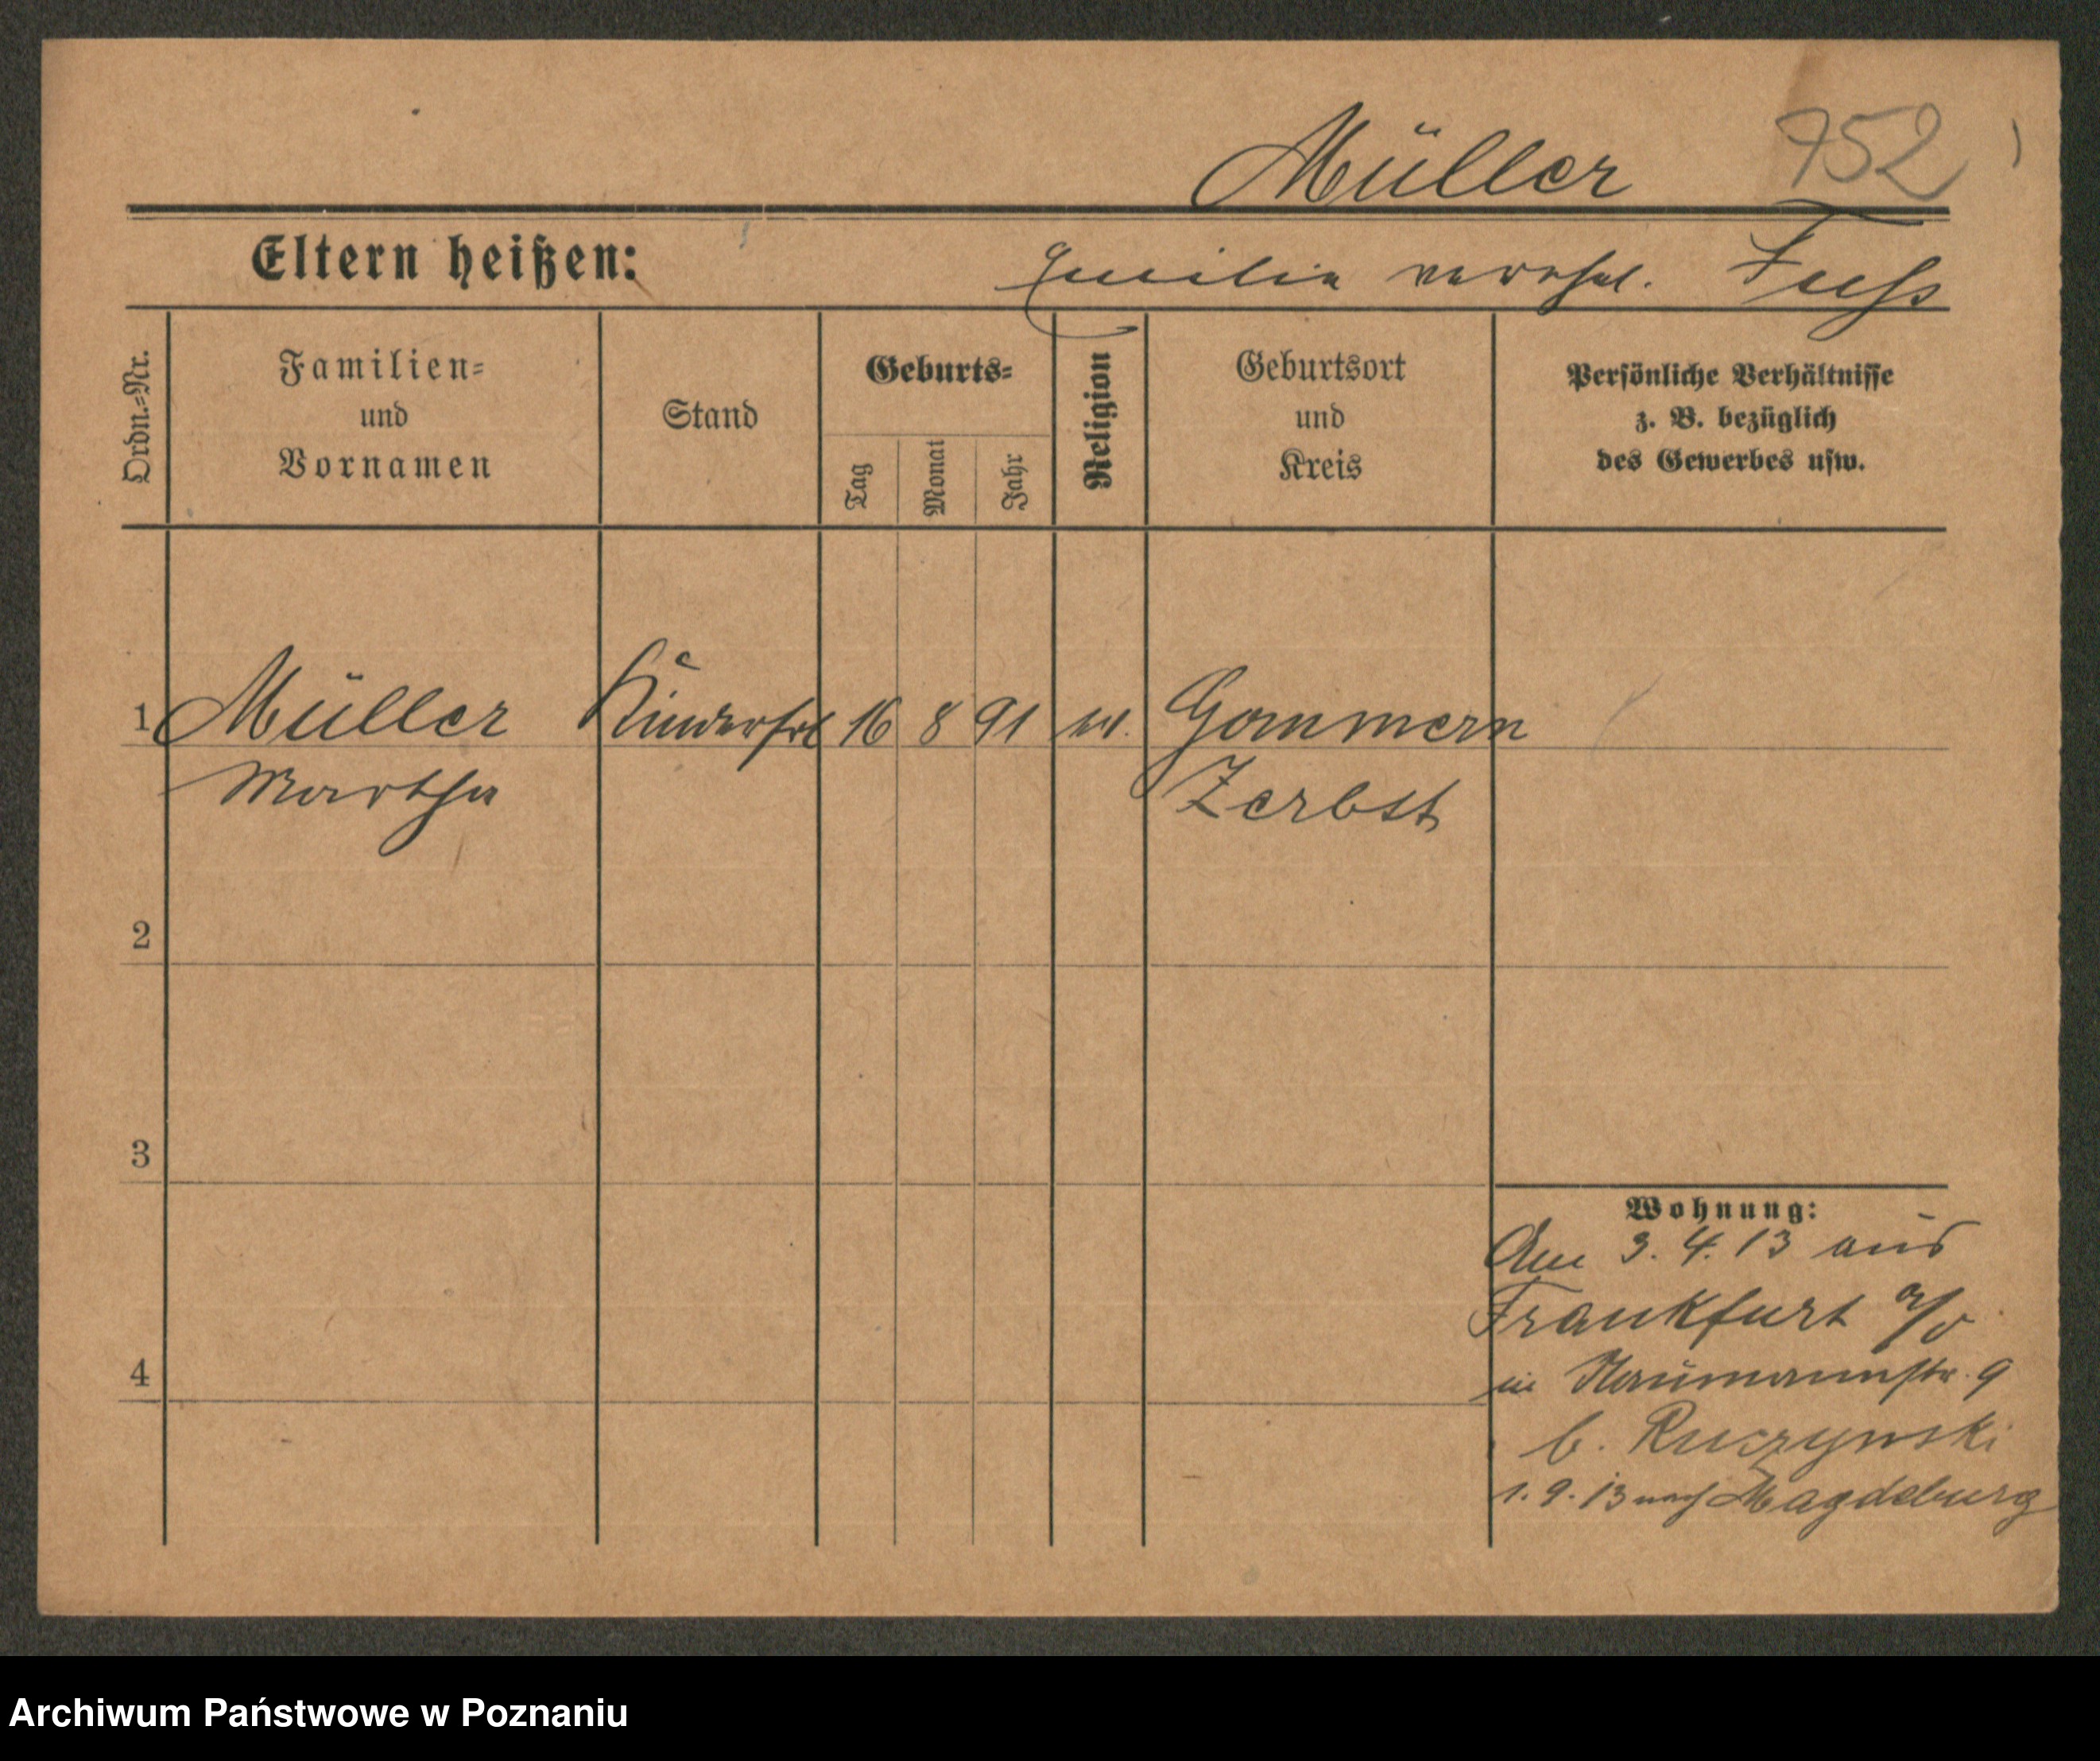 752
Müller
Eltern heißen:
Emilie verehel. Fuhs
Ordn.=Nr.
Familien=
und
Vornamen
Stand
Geburts=
Tag
Monat
Jahr
Religion
Geburtsort
und
Kreis
Persönliche Verhältnisse
z. B. bezüglich
des Gewerbes usw.
1 Müller Kinderfrl 16 8 91 ev. Gommern
Martha Zerbst
2
3
4
Wohnung:
Am 3. 4. 13 aus
Frankfurt a/O
in Naumannstr. 9
b. Ruczynski
1. 9. 13 nach Magdeburg
Archiwum Państwowe w Poznaniu